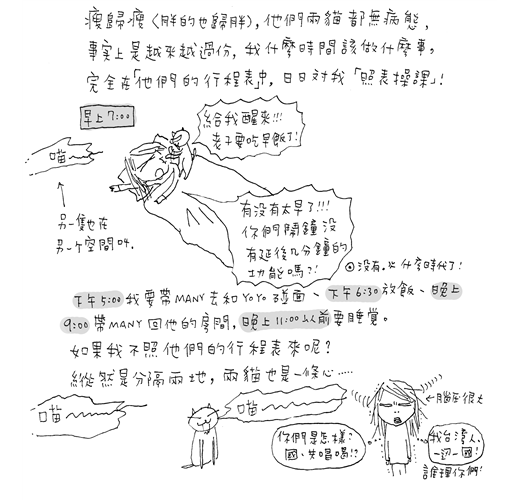 瘦歸瘦(胖的也歸胖),他們兩貓都無病態,
事實上是越來越過份,我什麼時間該做什麼事,
完全在「他們的行程表」中,日日對我「照表操課」!
早上7:00
給我醒來!!!
老子要吃早飯了!
喵~
另一隻也在
另一個空間叫.
有沒有太早了!!!
你們鬧鐘沒
有延後幾分鐘的
功能嗎?!
◎沒有.
什麼時代了!
下午5:00我要帶MANY去和YOYO碰面、下午6:30放飯、晚上
9:00帶MANY回他的房間,晚上11:00以前要睡覺。
如果我不照他們的行程表來呢?
縱然是分隔兩地,兩貓也是一條心……
喵~
喵~
←腦壓很大
你們是怎樣?
國、共唱喝!?
我台灣人、
一邊一國!
誰理你們!